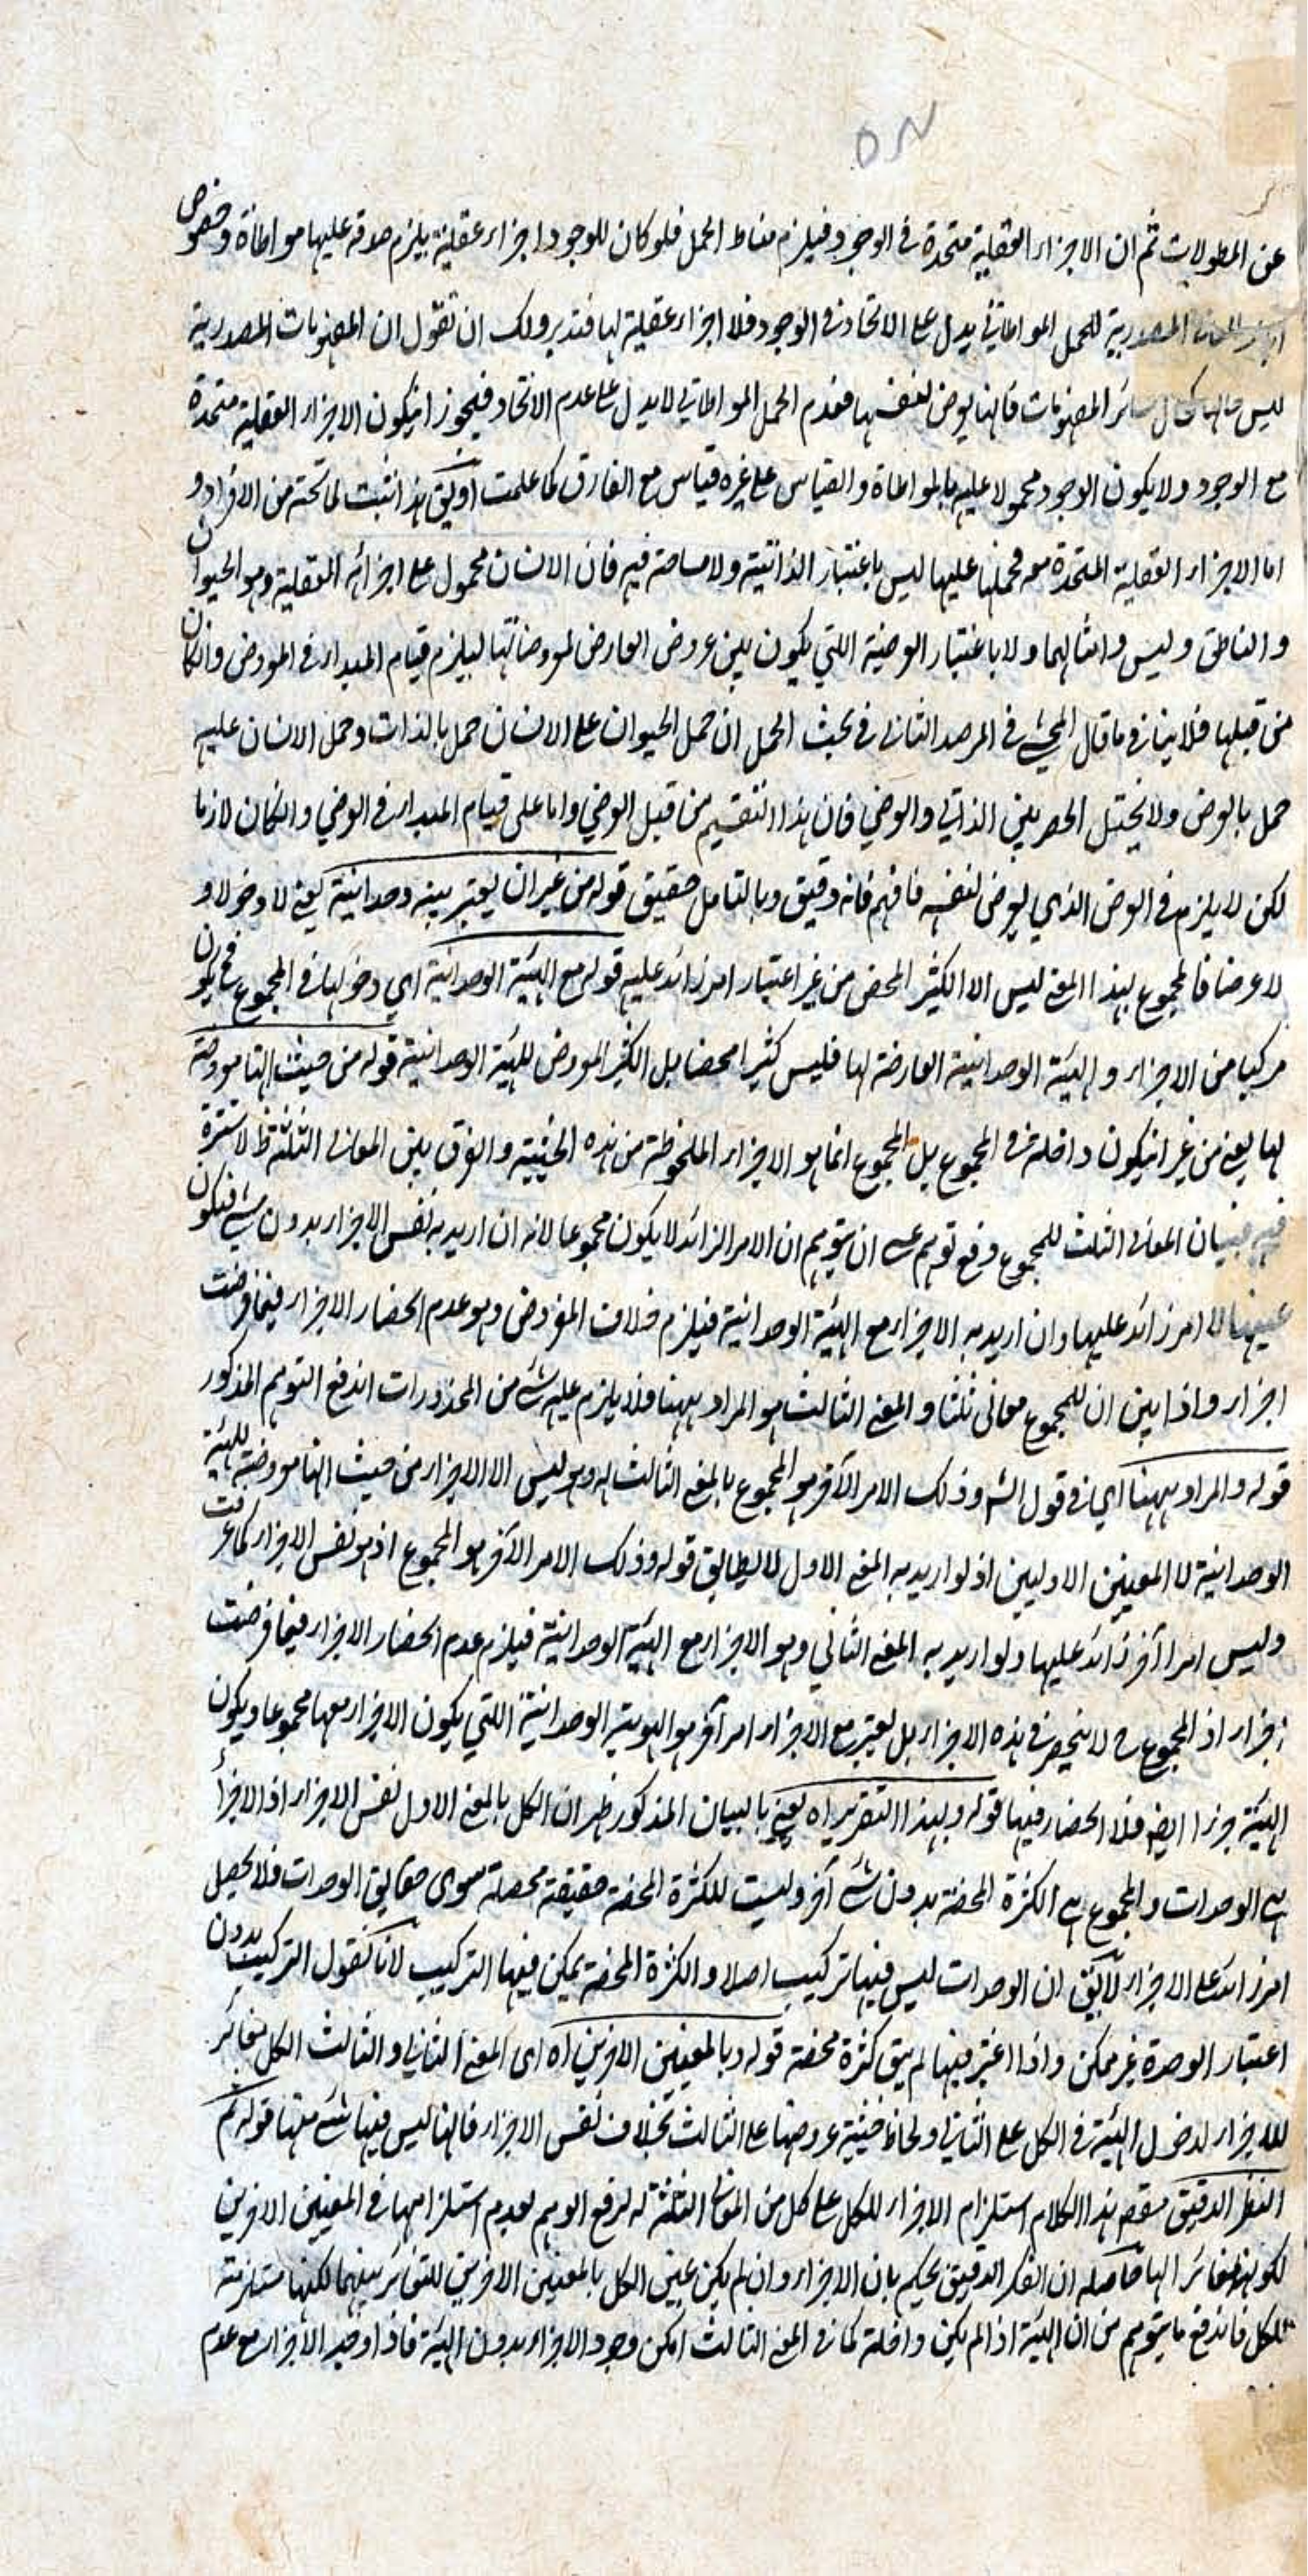 عن المطولات ثم ان الاجزاء العقلية متحدة في الوجود فيلزم مناط الحمل فلو كان للوجود اجزاء عقلية يلزم صدقه عليها مواطاة وخصوص
المصدرية للحمل المواطاتي يدل على الاتحاد في الوجود فلا اجزاء عقلية لها فتدبر ولك ان تقول ان المفهومات المصدرية
ليس حالها كحال سائر المفهومات فانها يعرض لنفسها فعدم الحمل المواطاتي لا يدل على عدم الاتحاد فيجوز انيكون الاجزاء العقلية متحدة
مع الوجود ولا يكون الوجود محمولا عليه بالمواطاة والقياس على غيره قياس مع الفارق كما علمت او يق هذا يثبت لما تحته من الافراد و
اما الاجزاء العقلية المتحدة معه فحملها عليها ليس باعتبار الذاتية ولا مسامحة فيه فان الانسان محمول على اجزائه العقلية وهو الحيوان
والناطق وليس وامثالهما ولا باعتبار العرضية اللتي يكون بين عروض العوارض لمعروضاتها ليلزم قيام المبدا في المعروض وانكان
من قبلها فلا ينافي ما قال المحشي في المرصد الثاني في بحث الحمل ان حمل الحيوان على الانسان حمل بالذات وحمل الانسان عليه
حمل بالعرض ولا يختل الحصر بين الذاتي والعرضي فان هذا التقسيم من قبل العرضي واما على قيام المبدا في العرضي وانكان لازما
لكن لا يلزم في العرض الذي يعرض لنفسه فافهم فانه دقيق وبالتامل حقيق قوله من غير ان يعتبر هيئة وحدانية يعني لا دخولا و
لا عروضا فالمجموع بهذا المعنى ليس الا الكثير المحض من غير اعتبار امر زائد عليه قوله مع الهيئة الوحدانية اي دخولها في المجموع فح يكون
مركبا من الاجزاء والهيئة الوحدانية العارضة لها فليس كثيرا محضا بل الكثير المعروض للهيئة الوحدانية قوله من حيث انها معروضة
لها يعني من غير انيكون داخلة في المجموع بل المجموع انما هو الاجزاء الملحوظة من هذه الحيثية والفرق بين المعاني الثلثة ظ لا سترة
فيه فبيان المعاني الثلث للمجموع دفع توهم عسى ان يتوهم ان الامر الزائد لا يكون مجموعا لانه ان اريد به نفس الاجزاء بدون شي فيكون
عينها لا امر زائد عليها وان اريد به الاجزاء مع الهيئة الوحدانية فيلزم خلاف المفروض وهو عدم انحصار الاجزاء فيما فرضت
اجزاء واذا بين ان للمجموع معاني ثلثا والمعنى الثالث هو المراد ههنا فلا يلزم عليه شي من المحذورات اندفع التوهم المذكور
قوله والمراد ههنا اي في قول الش وذلك الامر الآخر هو المجموع بالمعنى الثالث له وهو ليس الا الاجزاء من حيث انها معروضة للهيئة
الوحدانية لا المعنيين الاوليين اذ لو اريد به المعنى الاول لا يطابق قوله وذلك الامر الآخر هو المجموع اذ هو نفس الاجزاء كما عرفت
وليس امرا آخر زائد عليها ولو اريد به المعنى الثاني وهو الاجزاء مع الهيئة الوحدانية فيلزم عدم انحصار الاجزاء فيما فرضت
اجزاء اذ المجموع ح لا ينحصر في هذه الاجزاء بل يعتبر مع الاجزاء امر آخر هو الهوية الوحدانية اللتي يكون الاجزاء معها مجموعا ويكون
الهيئة جزءا ايضا فلا انحصار فيها قوله وبهذا التقرير اه يعني بالبيان المذكور ظهر ان الكل بالمعنى الاول نفس الاجزاء اذ الاجزاء
هي الوحدات والمجموع هي الكثرة المحضة بدون شي آخر وليست للكثرة المحضة حقيقة محصلة سوى حقايق الوحدات فلا يحصل
امر زائد على الاجزاء لا يق ان الوحدات ليس فيها تركيب اصلا والكثرة المحضة يمكن فيها التركيب لانا نقول التركيب بدون
اعتبار الوحدة غير ممكن واذا اعتبر فيها لم يبق كثرة محضة قوله وبالمعنيين الاخرين اه اى المعنى الثاني والثالث الكل مغائر
للاجزاء لدخول الهيئة في الكل على الثاني ولحاظ حيثية عروضها على الثالث بخلاف نفس الاجزاء فانها ليس فيها شي منها قوله ثم
النظر الدقيق مقصود هذا الكلام استلزام الاجزاء للكل على كل من المعاني الثلثة له لرفع الوهم لعدم استلزامها في المعنيين الاخرين
لكونهما مغائر الها فحاصله ان الفكر الدقيق يحكم بان الاجزاء وان لم يكن عين الكل بالمعنيين الاخرين للتغائر بينهما لكنها مستلزمة
للكل فاندفع ما يتوهم من ان الهيئة اذا لم يكن داخلة كما في المعنى الثالث امكن وجود الاجزاء بدون الهيئة فاذا وجد الاجزاء مع عدم